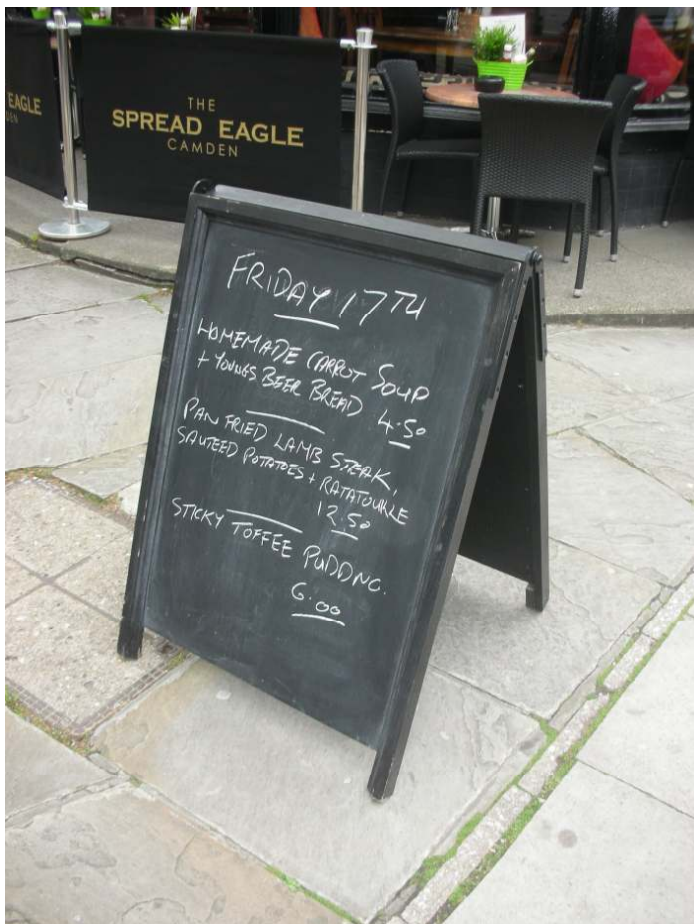 EAGLE
DEN
THE
SPREAD EAGLE
CAMDEN
FRIDAY 17TH
HOMEMADE CARROT SOUP
+ YOUNGS BEER BREAD 4.50
PAN FRIED LAMB STEAK,
SAUTEED POTATOES + RATATOUILLE
12.50
STICKY TOFFEE PUDDNG.
6.00